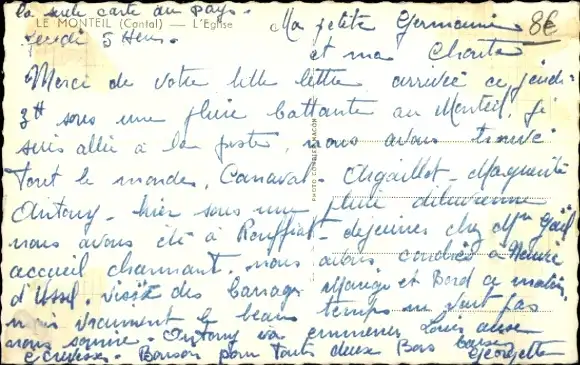 la seule carte du pays.
LE MONTEIL (Cantal) — L'Eglise
8€
Jeudi 5 Heures.
Ma petite Germaine
et ma Chouta
Merci de votre belle lettre arrivée ce jeudi -
3H sous une pluie battante au Monteil. Je
suis allée à la poste, nous avons trouvé
tout le monde, Canaval - Argaillot - Marguerite
Antony - hier sous une pluie diluvienne
nous avons été à Rouffiat - déjeuner chez Mme
accueil charmant. nous avons à Neuvic
d'Ussel. visite des barrages Marèges et Bord ce matin,
mais vraiment le beau temps ne veut pas
nous sourire. Antony va emmener Louis aux
écrevisses. Bonson pour toutes deux Bons baisers
Georgette
PHOTO COMBIER MACON